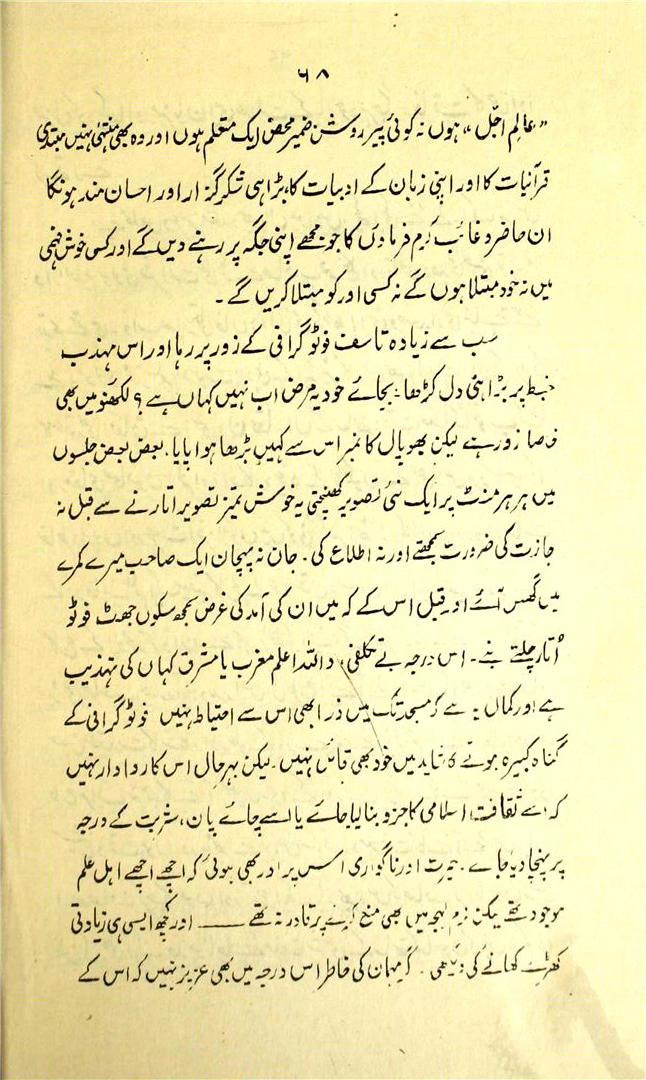 ۶۸
"عالِم اجل"، ہوں نہ کوئی پیر روشن ضمیر محض ایک متعلم ہوں اور وہ بھی منتہی نہیں مبتدی
قرآنیات کا اور اپنی زبان کے ادبیات کا، بڑا ہی شکر گزار اور احسان مند ہونگا
ان حاضر و غائب کرم فرماؤں کا جو مجھے اپنی جگہ پر رہنے دیں گے اور کسی خوش فہمی
میں نہ خود مبتلا ہوں گے نہ کسی اور کو مبتلا کریں گے۔
سب سے زیادہ تاسف فوٹو گرافی کے زور پر رہا اور اس مہذب
خبط پر بڑا ہی دل کڑھا۔ بجائے خود یہ مرض اب نہیں کہاں ہے؟ لکھنؤ میں بھی
خاصا زور ہے لیکن بھوپال کا نمبر اس سے کہیں بڑھا ہوا پایا۔ بعض بعض جلسوں
میں ہر ہر منٹ پر ایک نئی تصویر کھینچتی یہ خوش تمیز تصویر اتارنے سے قبل نہ
جازت کی ضرورت سمجھتے اور نہ اطلاع کی۔ جان نہ پہچان ایک صاحب میرے کمرے
میں گھس آئے اور قبل اس کے کہ میں ان کی آمد کی غرض سمجھ سکوں جھٹ فوٹو
اُتار چلتے بنے۔ اس درجہ بے تکلفی، واللہ اعلم مغرب یا مشرق کہاں کی تہذیب
ہے اور کمال یہ ہے کہ مسجد تک میں ذرا بھی اس سے احتیاط نہیں فوٹو گرافی کے
گناہ کبیرہ ہونے کا شاید میں خود بھی قائل نہیں۔ لیکن بہرحال اس کا روادار نہیں
کہ اسے ثقافت اسلامی کا جزو بنا لیا جائے یا اسے چائے پان، شربت کے درجہ
پر پہنچا دیا جائے۔ حیرت اور ناگواری اس پر اور بھی ہوئی کہ اچھے اچھے اہل علم
موجود تھے لیکن نرم لہجہ میں بھی منع کرنے پر قادر نہ تھے ــــــ اور کچھ ایسی ہی زیادتی
کھڑے کھانے کی دیکھی۔ گو مہمان کی خاطر اس درجہ میں بھی عزیز نہیں کہ اس کے